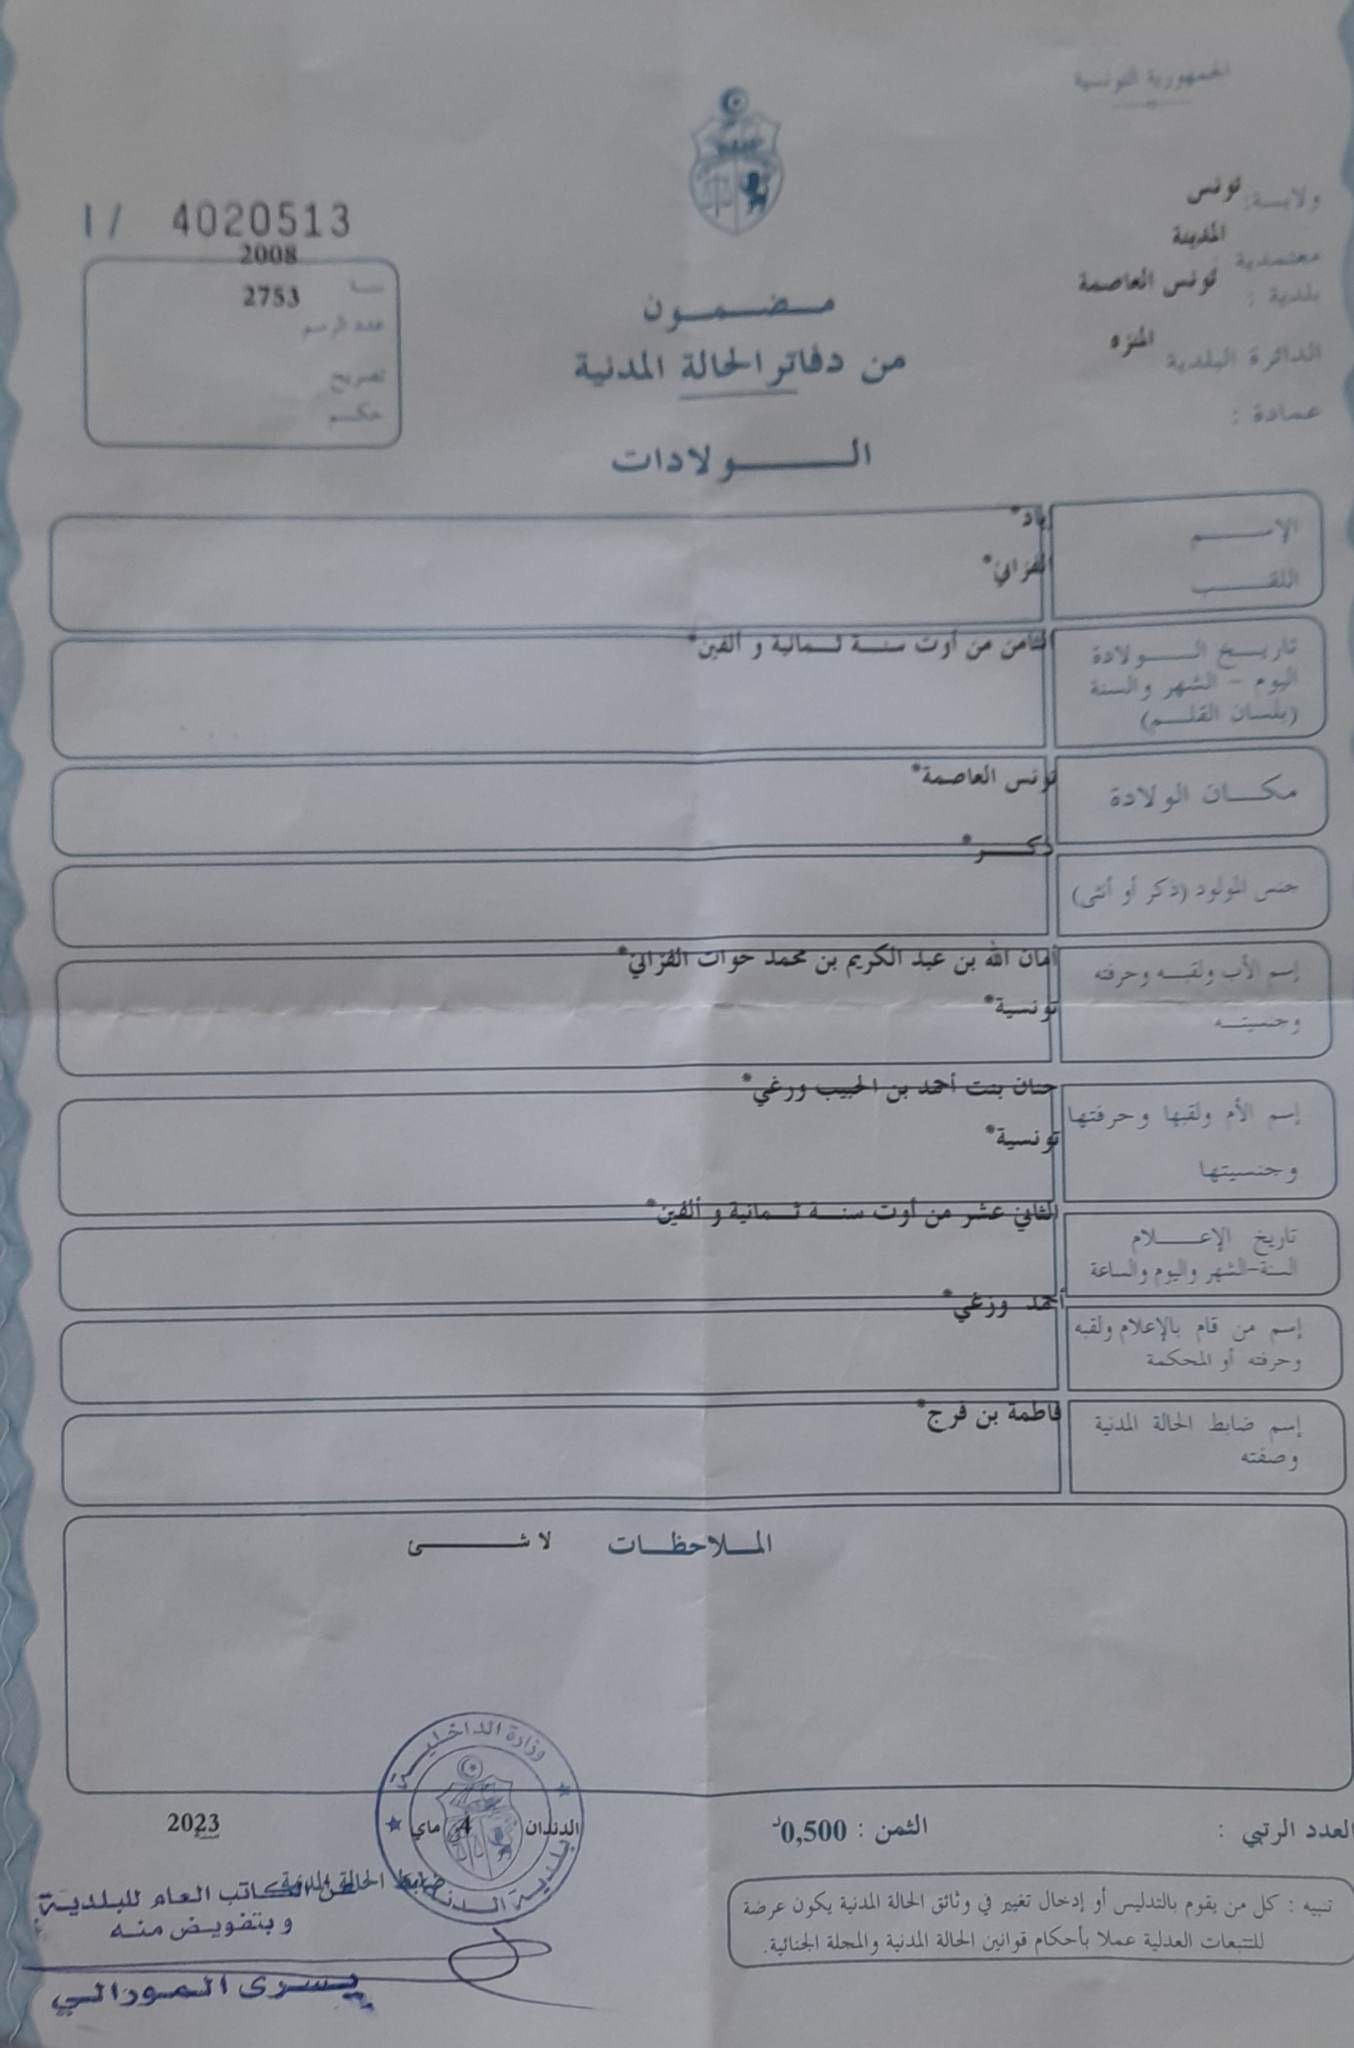 الجمهورية التونسية
ولايـة: تونس
معتمدية المدينة
بلدية : تونس العاصمة
الدائرة البلدية المنزه
عمادة :
I / 4020513
سنة 2008
عدد الرسم 2753
تصريح
حكم
مضمون
من دفاتر الحالة المدنية
الولادات
الإسم
اللقب
الفزاني*
تاريخ الولادة
اليوم - الشهر والسنة
(بلسان القلم)
الثامن من أوت سنة ثمانية و ألفين*
مكان الولادة
تونس العاصمة*
جنس المولود (ذكر أو أنثى)
ذكر*
إسم الأب ولقبه وحرفته
وجنسيته
أمان الله بن عبد الكريم بن محمد حوات الفزاني*
تونسية*
إسم الأم ولقبها وحرفتها
وجنسيتها
حنان بنت أحمد بن الحبيب ورغي*
تونسية*
تاريخ الإعلام
السنة-الشهر واليوم والساعة
الثاني عشر من أوت سنة ثمانية و ألفين*
إسم من قام بالإعلام ولقبه
وحرفته أو المحكمة
أحمد ورغي*
إسم ضابط الحالة المدنية
وصفته
فاطمة بن فرج*
الملاحظات لا شئ
العدد الرتبي :
الثمن : 0,500د
الدندان 4 ماي 2023
وزارة الداخلية
بلدية الدندان
ضابط الحالة المدنية
عن الكاتب العام للبلدية
و بتفويض منه
يسرى المورالي
تنبيه : كل من يقوم بالتدليس أو إدخال تغيير في وثائق الحالة المدنية يكون عرضة
للتتبعات العدلية عملا بأحكام قوانين الحالة المدنية والمجلة الجنائية.